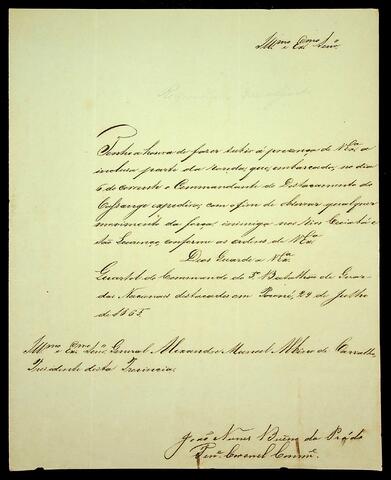 Illmo e Exmo Senr.
Tenho a honra de fazer subir á presença de V. Exa a
inclusa parte da ronda, que, embarcada, no dia
6 do corrente o Commandante do Destacamento do
expedio, com o fim de observar qualquer
movimento da força inimiga nos Rios Cuiabá e
São Lourenço conforme as ordens de V. Exa
Deos Guarde a V. Exa
Quartel do Commando do 5º Batalhão de Guar-
das Nacionais destacado em Poconé, 29 de Julho
de 1865.
Illmo e Exmo Senr. General Alexandre Manoel Albino de Carvalho
Presidente desta Provincia.
João Nunes Bueno do Prado
Tene. Coronel Comme.